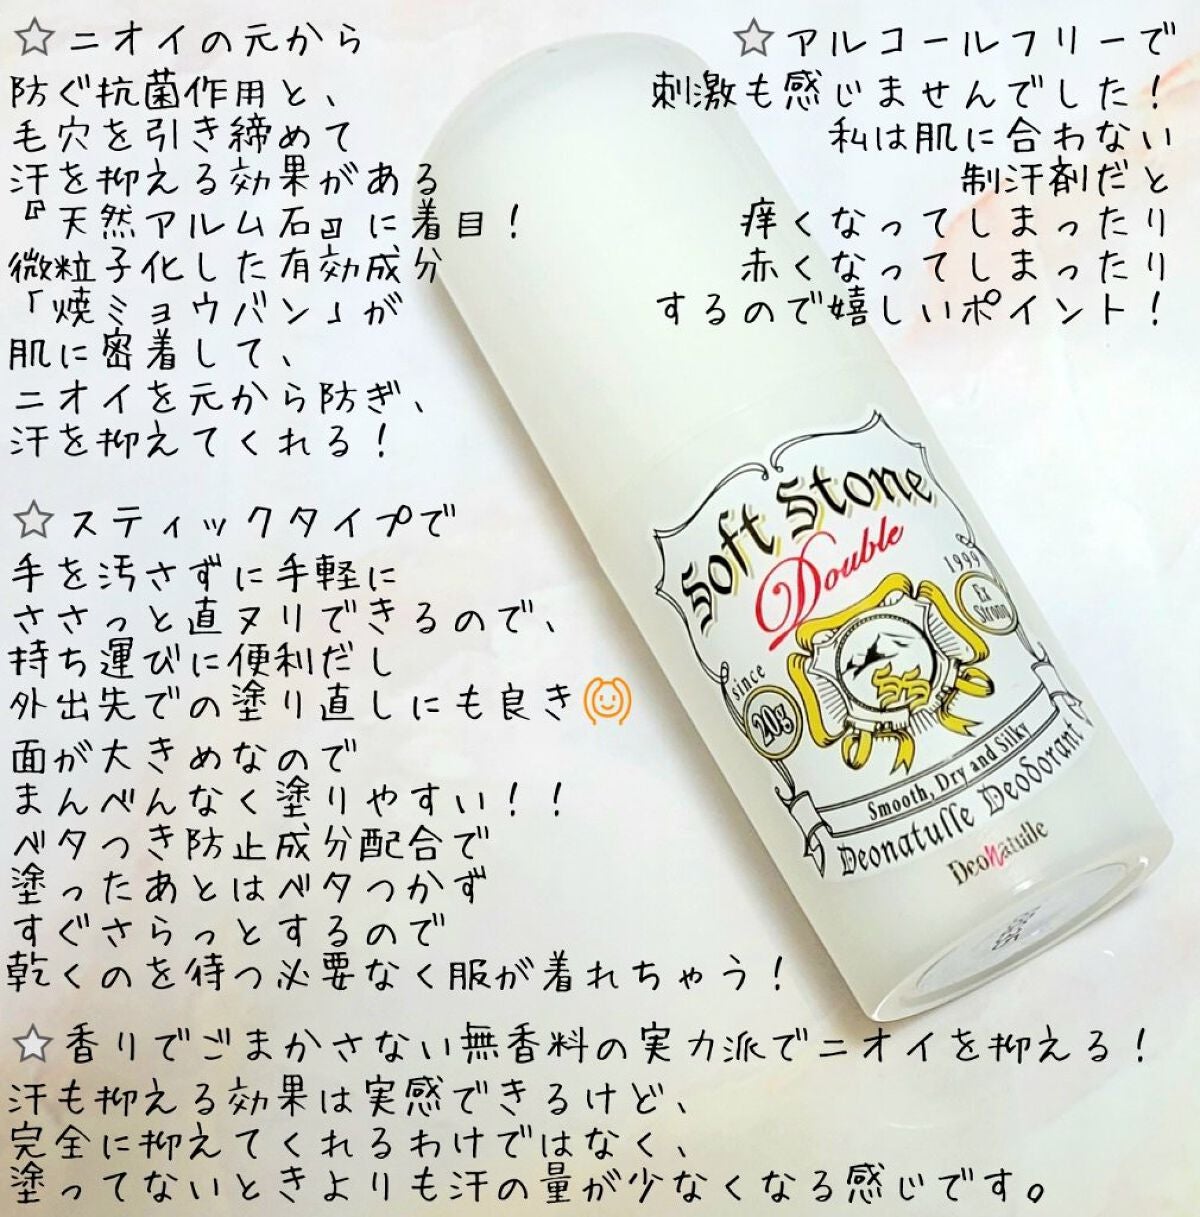 ☆ニオイの元から
防ぐ抗菌作用と、
毛穴を引き締めて
汗を抑える効果がある
『天然アルム石』に着目！
微粒子化した有効成分
「焼ミョウバン」が
肌に密着して、
ニオイを元から防ぎ、
汗を抑えてくれる！
☆アルコールフリーで
刺激も感じませんでした！
私は肌に合わない
制汗剤だと
痒くなってしまったり
赤くなってしまったり
するので嬉しいポイント！
☆スティックタイプで
手を汚さずに手軽に
ささっと直ヌリできるので、
持ち運びに便利だし
外出先での塗り直しにも良き🙆
面が大きめなので
まんべんなく塗りやすい！！
ベタつき防止成分配合で
塗ったあとはベタつかず
すぐさらっとするので
乾くのを待つ必要なく服が着れちゃう！
Soft Stone
Double
1999
Ex
Strong
since
20g
SS
Smooth, Dry and Silky
Deonatulle Deodorant
DeoNatulle
☆香りでごまかさない無香料の実力派でニオイを抑える！
汗も抑える効果は実感できるけど、
完全に抑えてくれるわけではなく、
塗ってないときよりも汗の量が少なくなる感じです。